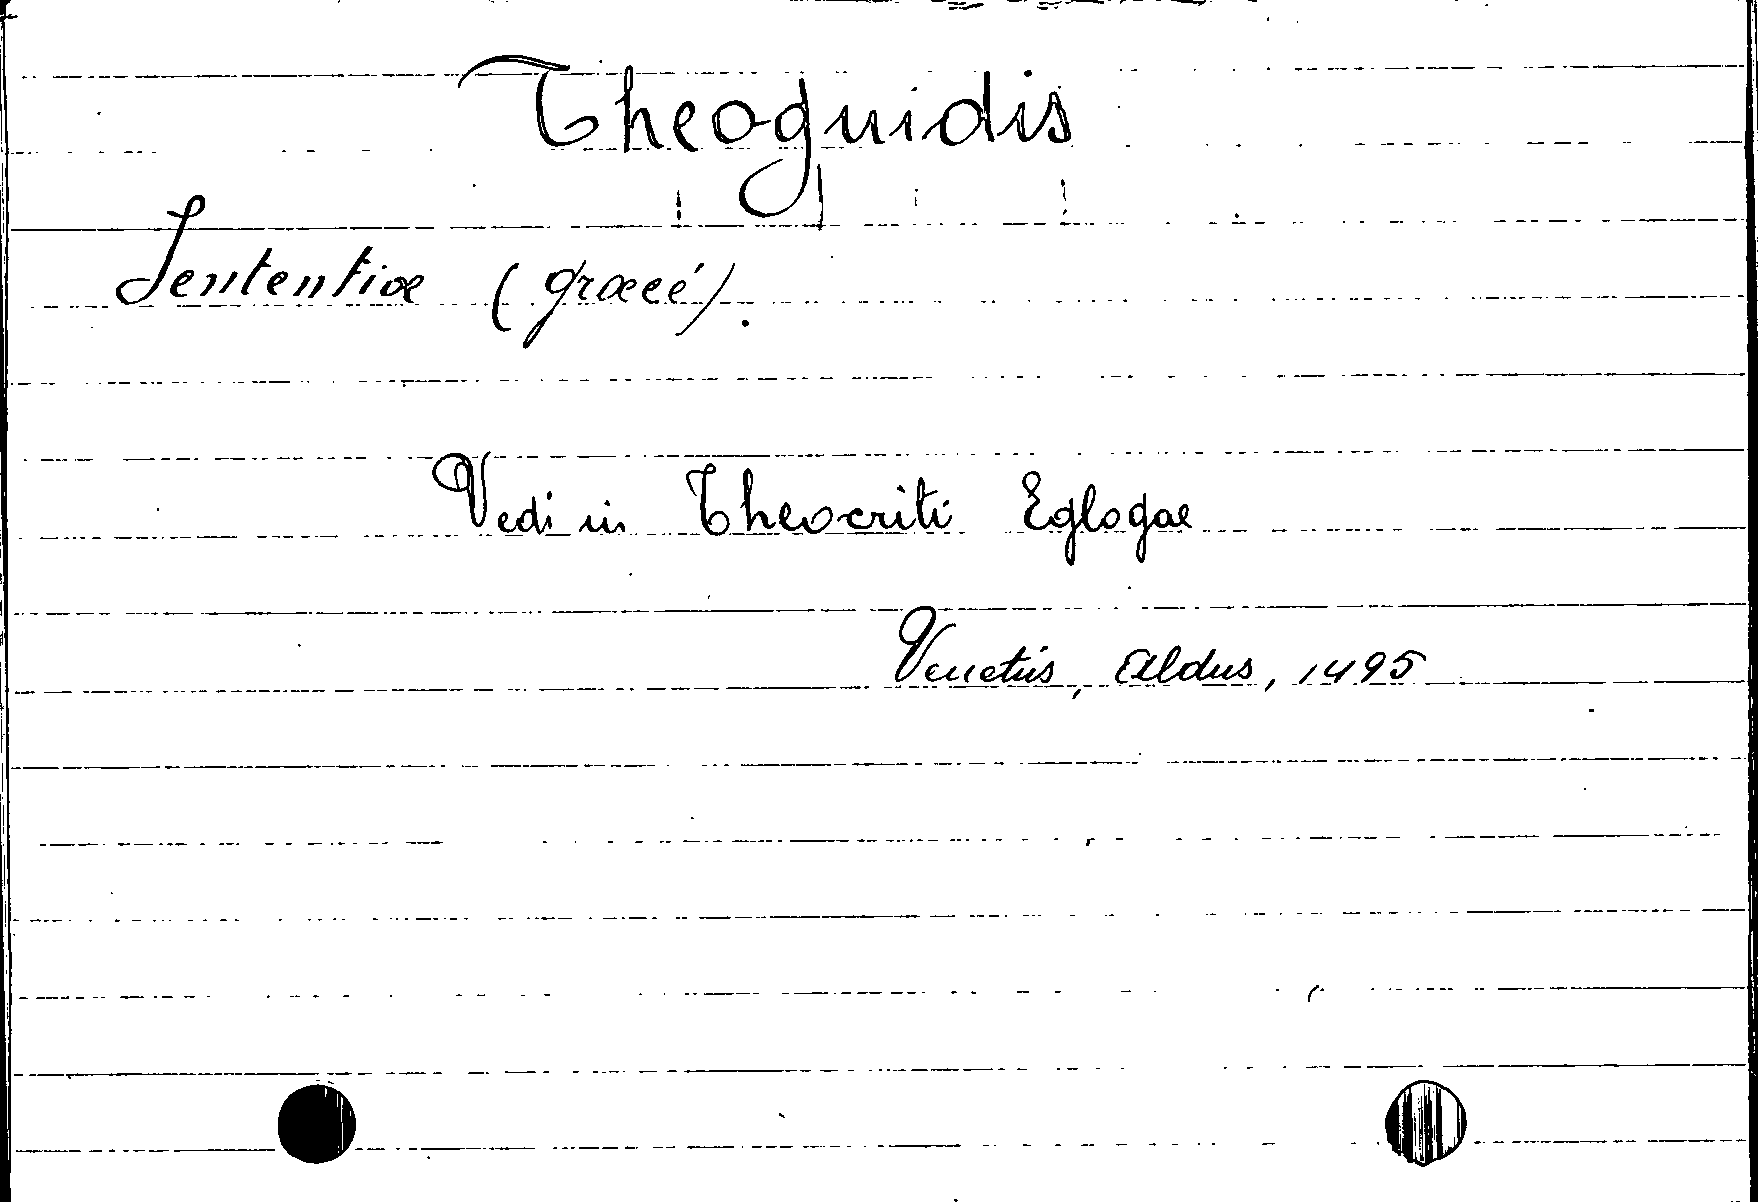 Theognidis
Sententiæ (græcé).
Vedi in Theocriti Eglogae
Venetiis, Aldus, 1495